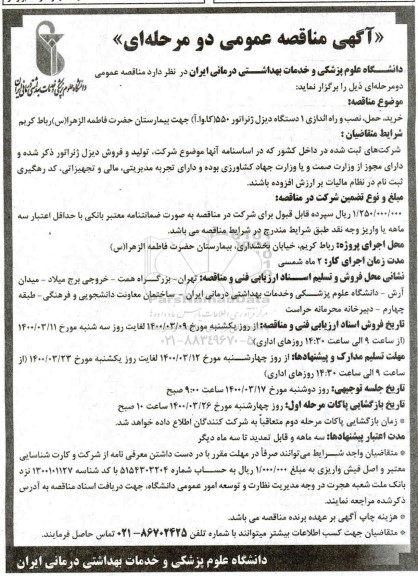 «آگهی مناقصه عمومی دو مرحله‌ای»
دانشگاه علوم پزشکی و خدمات بهداشتی درمانی ایران در نظر دارد مناقصه عمومی
دومرحله‌ای ذیل را برگزار نماید:
موضوع مناقصه:
خرید، حمل، نصب و راه اندازی ۱ دستگاه دیزل ژنراتور ۵۵۰(کاوا.آ) جهت بیمارستان حضرت فاطمه الزهرا(س)رباط کریم
شرایط متقاضیان :
شرکت‌های ثبت شده در داخل کشور که در اساسنامه آنها موضوع شرکت، تولید و فروش دیزل ژنراتور ذکر شده و
دارای مجوز از وزارت صمت و یا وزارت جهاد کشاورزی بوده و دارای تجربه مدیریتی، مالی و تجهیزاتی، کد رهگیری
ثبت نام در نظام مالیات بر ارزش افزوده باشند.
مبلغ و نوع تضمین شرکت در مناقصه:
۱/۲۵۰/۰۰۰/۰۰۰ ریال سپرده قابل قبول برای شرکت در مناقصه به صورت ضمانتنامه معتبر بانکی با حداقل اعتبار سه
ماهه یا واریز وجه نقد طبق شرایط مندرج در شرایط مناقصه می باشد.
محل اجرای پروژه: رباط کریم، خیابان بخشداری، بیمارستان حضرت فاطمه الزهرا(س)
مدت زمان اجرای کار: ۲ ماه شمسی
نشانی محل فروش و تسلیم اسناد ارزیابی فنی و مناقصه: تهران- بزرگراه همت - خروجی برج میلاد - میدان
آرش - دانشگاه علوم پزشکی وخدمات بهداشتی درمانی ایران - ساختمان معاونت دانشجویی و فرهنگی- طبقه
چهارم - دبیرخانه محرمانه حراست
تاریخ فروش اسناد ارزیابی فنی و مناقصه: از روز یکشنبه مورخ ۱۴۰۰/۰۳/۰۹ لغایت روز سه شنبه مورخ ۱۴۰۰/۰۳/۱۱
(از ساعت ۹ الی ساعت ۱۴:۳۰ روزهای اداری)
مهلت تسلیم مدارک و پیشنهادها: از روز چهارشنبه مورخ ۱۴۰۰/۰۳/۱۲ لغایت روز یکشنبه مورخ ۱۴۰۰/۰۳/۲۳ (از
ساعت ۹ الی ساعت ۱۴:۳۰ روزهای اداری)
تاریخ جلسه توجیهی: روز دوشنبه مورخ ۱۴۰۰/۰۳/۱۷ ساعت ۹:۰۰ صبح
تاریخ بازگشایی پاکات مرحله اول: روز چهارشنبه مورخ ۱۴۰۰/۰۳/۲۶ ساعت ۱۰ صبح
* زمان بازگشایی پاکات مرحله دوم متعاقباً به شرکت کنندگان اطلاع داده خواهد شد.
مدت اعتبار پیشنهادها: سه ماهه و قابل تمدید تا سه ماه دیگر
* متقاضیان واجد شرایط می‌توانند صرفاً در مهلت مقرر با در دست داشتن معرفی نامه از شرکت و کارت شناسایی
معتبر و اصل فیش واریزی به مبلغ ۱/۰۰۰/۰۰۰ ریال به حساب شماره ۵۱۵۴۳۰۳۲۰۴ با کد شناسه ۱۳۰۰۱۰۱۱۲۷ نزد
بانک ملت شعبه هجرت در وجه مدیریت نظارت و توسعه امور عمومی دانشگاه، جهت دریافت اسناد مناقصه به آدرس
ذکرشده مراجعه نمایند.
* هزینه چاپ آگهی بر عهده برنده مناقصه می باشد.
* متقاضیان جهت کسب اطلاعات بیشتر میتوانند با شماره تلفن ۸۶۷۰۲۴۲۵-۰۲۱ تماس حاصل فرمایند.
دانشگاه علوم پزشکی و خدمات بهداشتی درمانی ایران